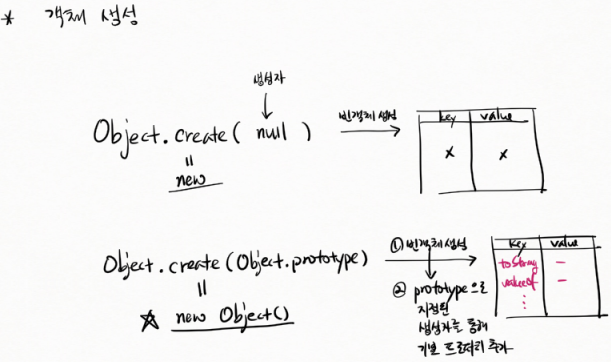 * 객체 생성
생성자
↓
Object.create( null ) 빈객체 생성 →
key value
x x
"
new
Object.create(Object.prototype) ① 빈객체 생성 →
"
☆ new Object()
② prototype으로
지정된
생성자를 통해
기본 프로퍼티 추가
key value
toString –
valueof –
⋮